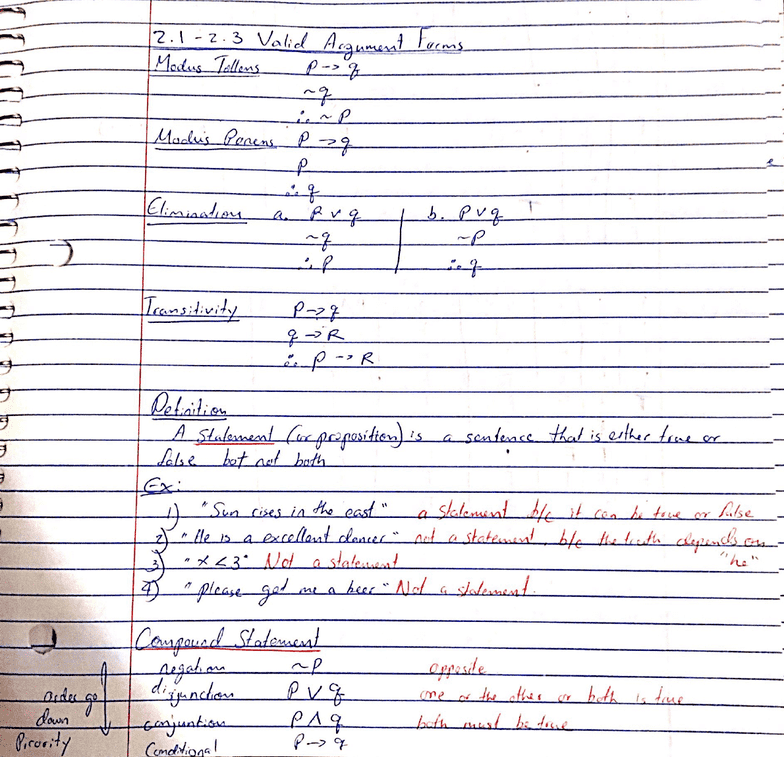 2.1 - 2.3 Valid Argument Forms
Modus Tollens P -> q
~q
∴ ~P
Modus Ponens P -> q
P
∴ q
Elimination a. P v q b. P v q
~q ~P
∴ P ∴ q
Transitivity P -> q
q -> R
∴ P -> R
Definition
A Statement (or proposition) is a sentence that is either true or
false but not both
Ex:
1) "Sun rises in the east" a statement b/c it can be true or false
2) "He is a excellent dancer" not a statement, b/c the truth depends on "he"
3) "x < 3" Not a statement
4) "please get me a beer" Not a statement.
Compound Statement
negation ~P opposite
disjunction P V q one or the other or both is true
conjuntion P Λ q both must be true
Conditional P -> q
order go
down
Picority